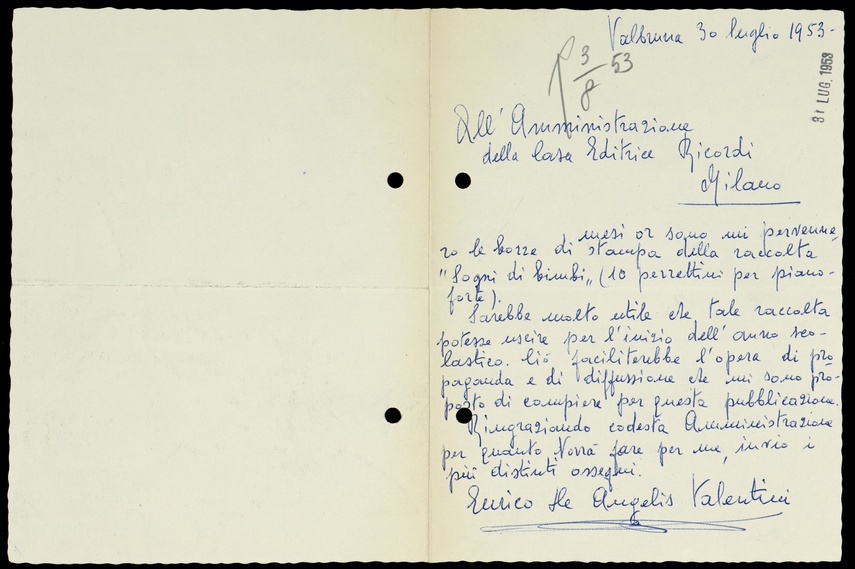 Valbruna 30 luglio 1953-
3/8 53
31 LUG. 1953
All' Amministrazione
della Casa Editrice Ricordi
Milano
mesi or sono mi pervenne
ro le bozze di stampa della raccolta
"Sogni di bimbi" (10 pezzettini per piano-
forte).
Sarebbe molto utile che tale raccolta
potesse uscire per l'inizio dell'anno sco-
lastico. Ciò faciliterebbe l'opera di pro
paganda e di diffussione che mi sono pro-
posto di compiere per questa pubblicazione.
Ringraziando codesta Amministrazione
per quanto Vorrà fare per me, invio i
più distinti ossequi.
Enrico De Angelis Valentini